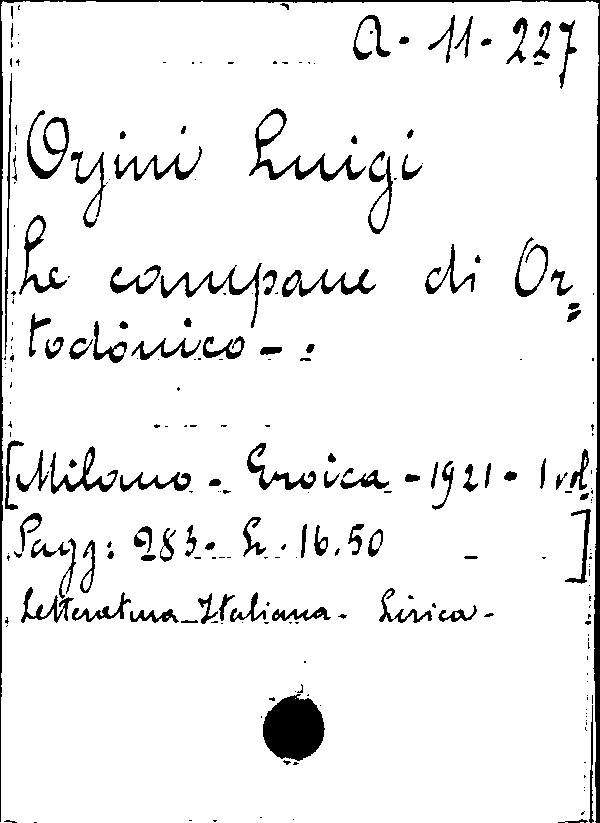 A. 11. 227
Orsini Luigi
Le campane di Or=
todònico - .
[Milano - Eroica - 1921 - 1 vol.
Pagg: 283. L. 16.50 - ]
Letteratura Italiana. Lirica -